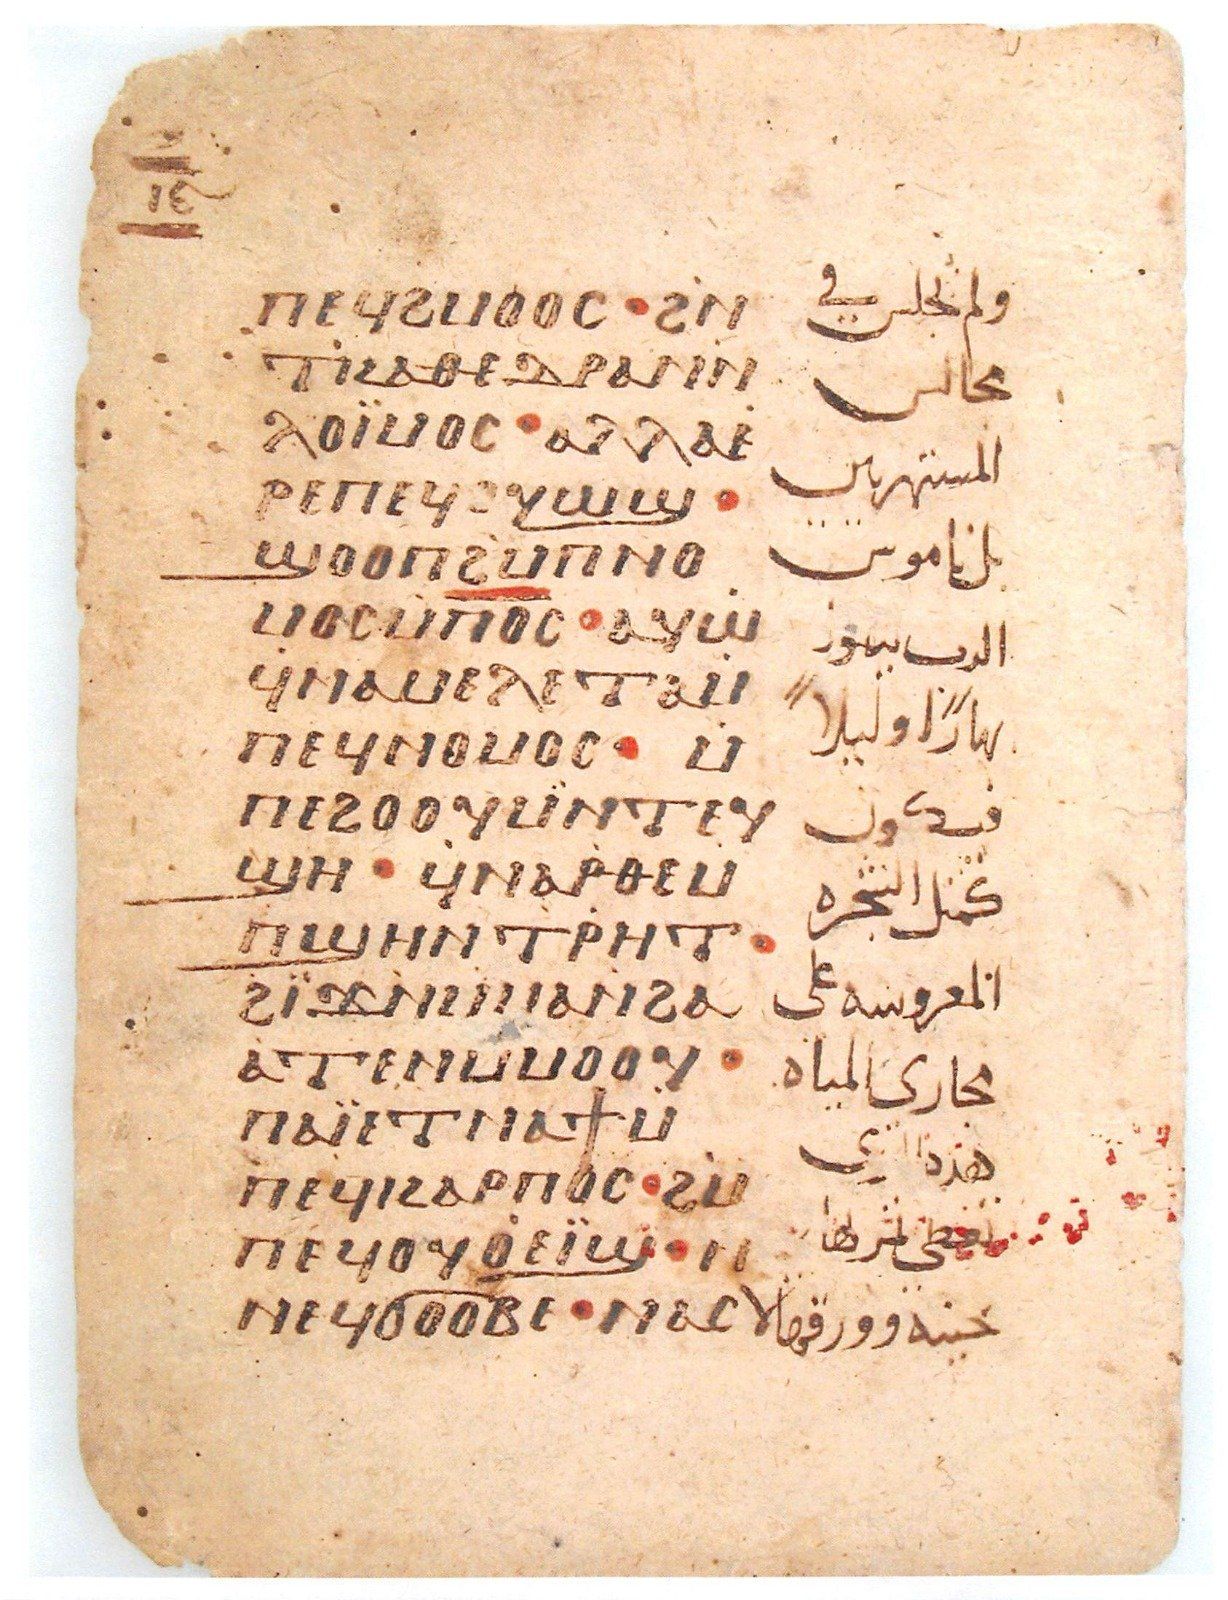 ⲓⲉ
ⲡⲉϥϩⲙⲟⲟⲥ · ϩⲛ̇
ⲧⲕⲁⲑⲉⲇⲣⲁⲛ̇ⲛ̇
ⲗⲟⲓ̈ⲙⲟⲥ · ⲁⲗⲗⲁⲉ̇
ⲣⲉⲡⲉϥⲟⲩⲱϣ ·
ϣⲟⲟⲡϩⲙ̇ⲡⲛⲟ
ⲙⲟⲥⲙ̇ⲡⲟⲥ · ⲁⲩⲱ̇
ϥ̇ⲛⲁⲙⲉⲗⲉⲧⲁⲙ̇
ⲡⲉϥⲛⲟⲙⲟⲥ · ⲙ̇
ⲡⲉϩⲟⲟⲩⲙ̇ⲛ̇ⲧⲉⲩ
ϣⲏ · ϥ̇ⲛⲁⲣ̇ⲑⲉⲙ̇
ⲡϣⲏⲛ ⲧⲣ̇ⲏⲧ ·
ϩⲓ̈ϫⲛ̇ⲙ̇ⲙⲁⲛ̇ϩⲁ
ⲁⲧⲉⲛⲙⲙⲟⲟⲩ ·
ⲡⲁⲓ̈ⲉⲧⲛⲁϯⲙ̇
ⲡⲉϥⲕⲁⲣⲡⲟⲥ · ϩⲙ̇
ⲡⲉϥⲟⲩⲟ̇ⲉⲓ̈ϣ · ⲛ
ⲛⲉϥϭⲟⲟⲃⲉ · ⲛⲁⲥ
ولم تجلس في
مجالس
المستهزيين
بل ناموس
الرب يهوز
نهارًا وليلاً
فيكون
كمثل الشجره
المغروسه على
مجارى المياه
هذه التى
تعطى ثمرتها
حينه وورقها لا